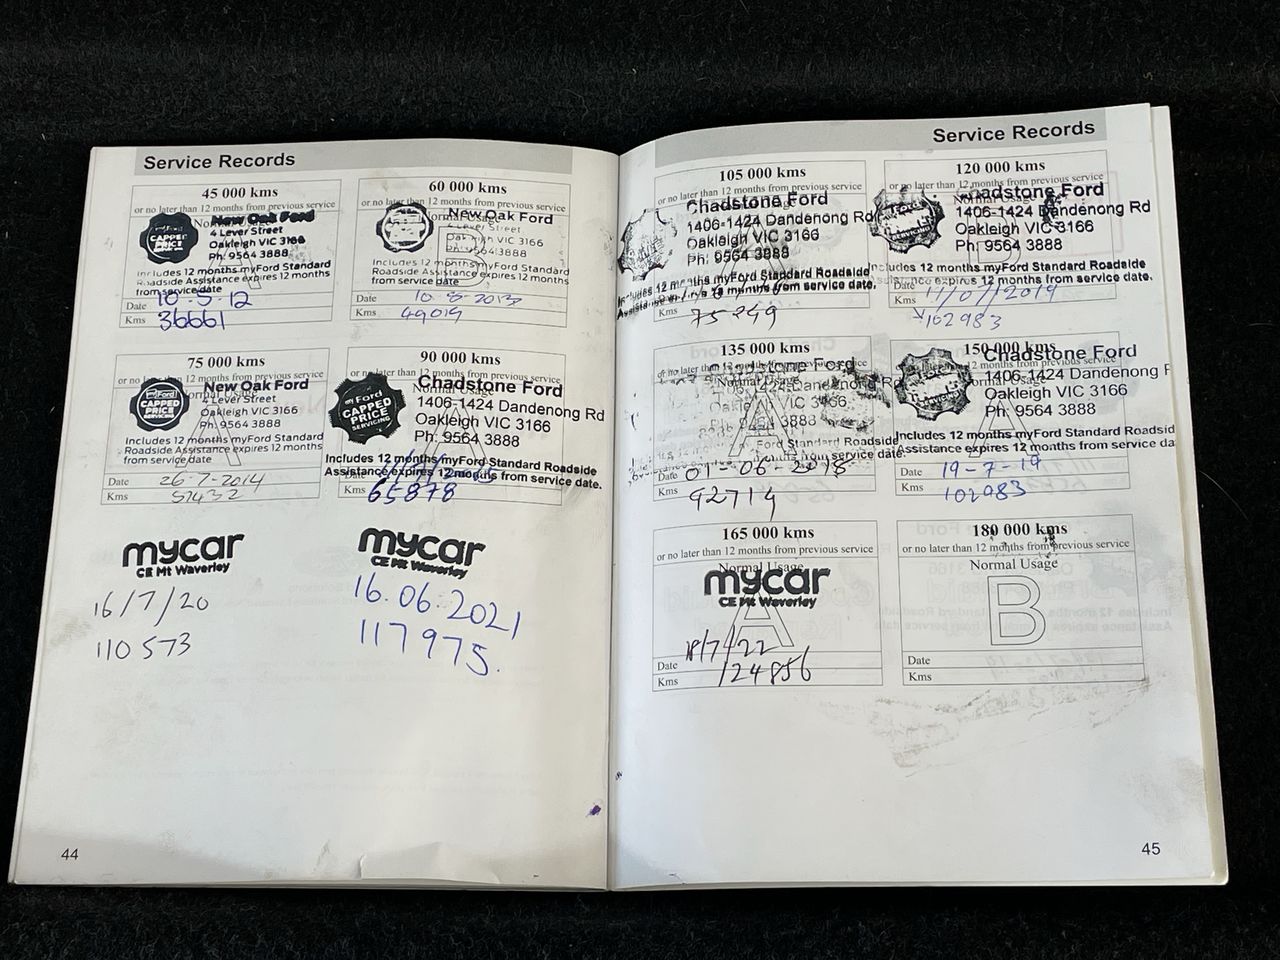 Service Records
45 000 kms
or no later than 12 months from previous service
Normal Usage
New Oak Ford
4 Lever Street
Oakleigh VIC 3166
Ph: 9564 3888
CAPPED PRICE
Includes 12 months myFord Standard
Roadside Assistance expires 12 months
from service date
Date 10-5-12
Kms 36661
60 000 kms
or no later than 12 months from previous service
Normal Usage
B
New Oak Ford
4 Lever Street
Oakleigh VIC 3166
Ph: 9564 3888
Includes 12 months myFord Standard
Roadside Assistance expires 12 months
from service date
Date 10-5-2013
Kms 49019
75 000 kms
or no later than 12 months from previous service
Normal Usage
A
New Oak Ford
4 Lever Street
Oakleigh VIC 3166
Ph: 9564 3888
myFord
CAPPED
PRICE
SERVICING
Includes 12 months myFord Standard
Roadside Assistance expires 12 months
from service date
Date 26-7-2014
Kms 57432
90 000 kms
or no later than 12 months from previous service
Normal Usage
A
Chadstone Ford
1406-1424 Dandenong Rd
Oakleigh VIC 3166
Ph: 9564 3888
myFord
CAPPED
PRICE
SERVICING
Includes 12 months myFord Standard Roadside
Assistance expires 12 months from service date.
Date
Kms 65878
mycar
CE Mt Waverley
16/7/20
110573
mycar
CE Mt Waverley
16.06.2021
117975.
44
Service Records
105 000 kms
or no later than 12 months from previous service
Chadstone Ford
1406-1424 Dandenong Rd
Oakleigh VIC 3166
Ph: 9564 3888
Includes 12 months myFord Standard Roadside
Date
Kms
120 000 kms
or no later than 12 months from previous service
Normal Usage
B
Chadstone Ford
1406-1424 Dandenong Rd
Oakleigh VIC 3166
Ph: 9564 3888
Includes 12 months myFord Standard Roadside
Assistance expires 12 months from service date.
Date 11/07/2019
Kms 102983
135 000 kms
or no later than 12 months from previous service
Normal Usage
A
Chadstone Ford
1406-1424 Dandenong R
Oakleigh VIC 3166
Ph: 9564 3888
Ford Standard Roadside
from service date.
Date 01-06-2018
Kms 92714
150 000 kms
or no later than 12 months from previous service
Normal Usage
A
Chadstone Ford
1406-1424 Dandenong R
Oakleigh VIC 3166
Ph: 9564 3888
Includes 12 months myFord Standard Roadsid
Assistance expires 12 months from service da
Date 19-7-19
Kms 102983
165 000 kms
or no later than 12 months from previous service
Normal Usage
A
mycar
CE Mt Waverley
Date 18/7/22
Kms 124856
180 000 kms
or no later than 12 months from previous service
Normal Usage
B
Date
Kms
45